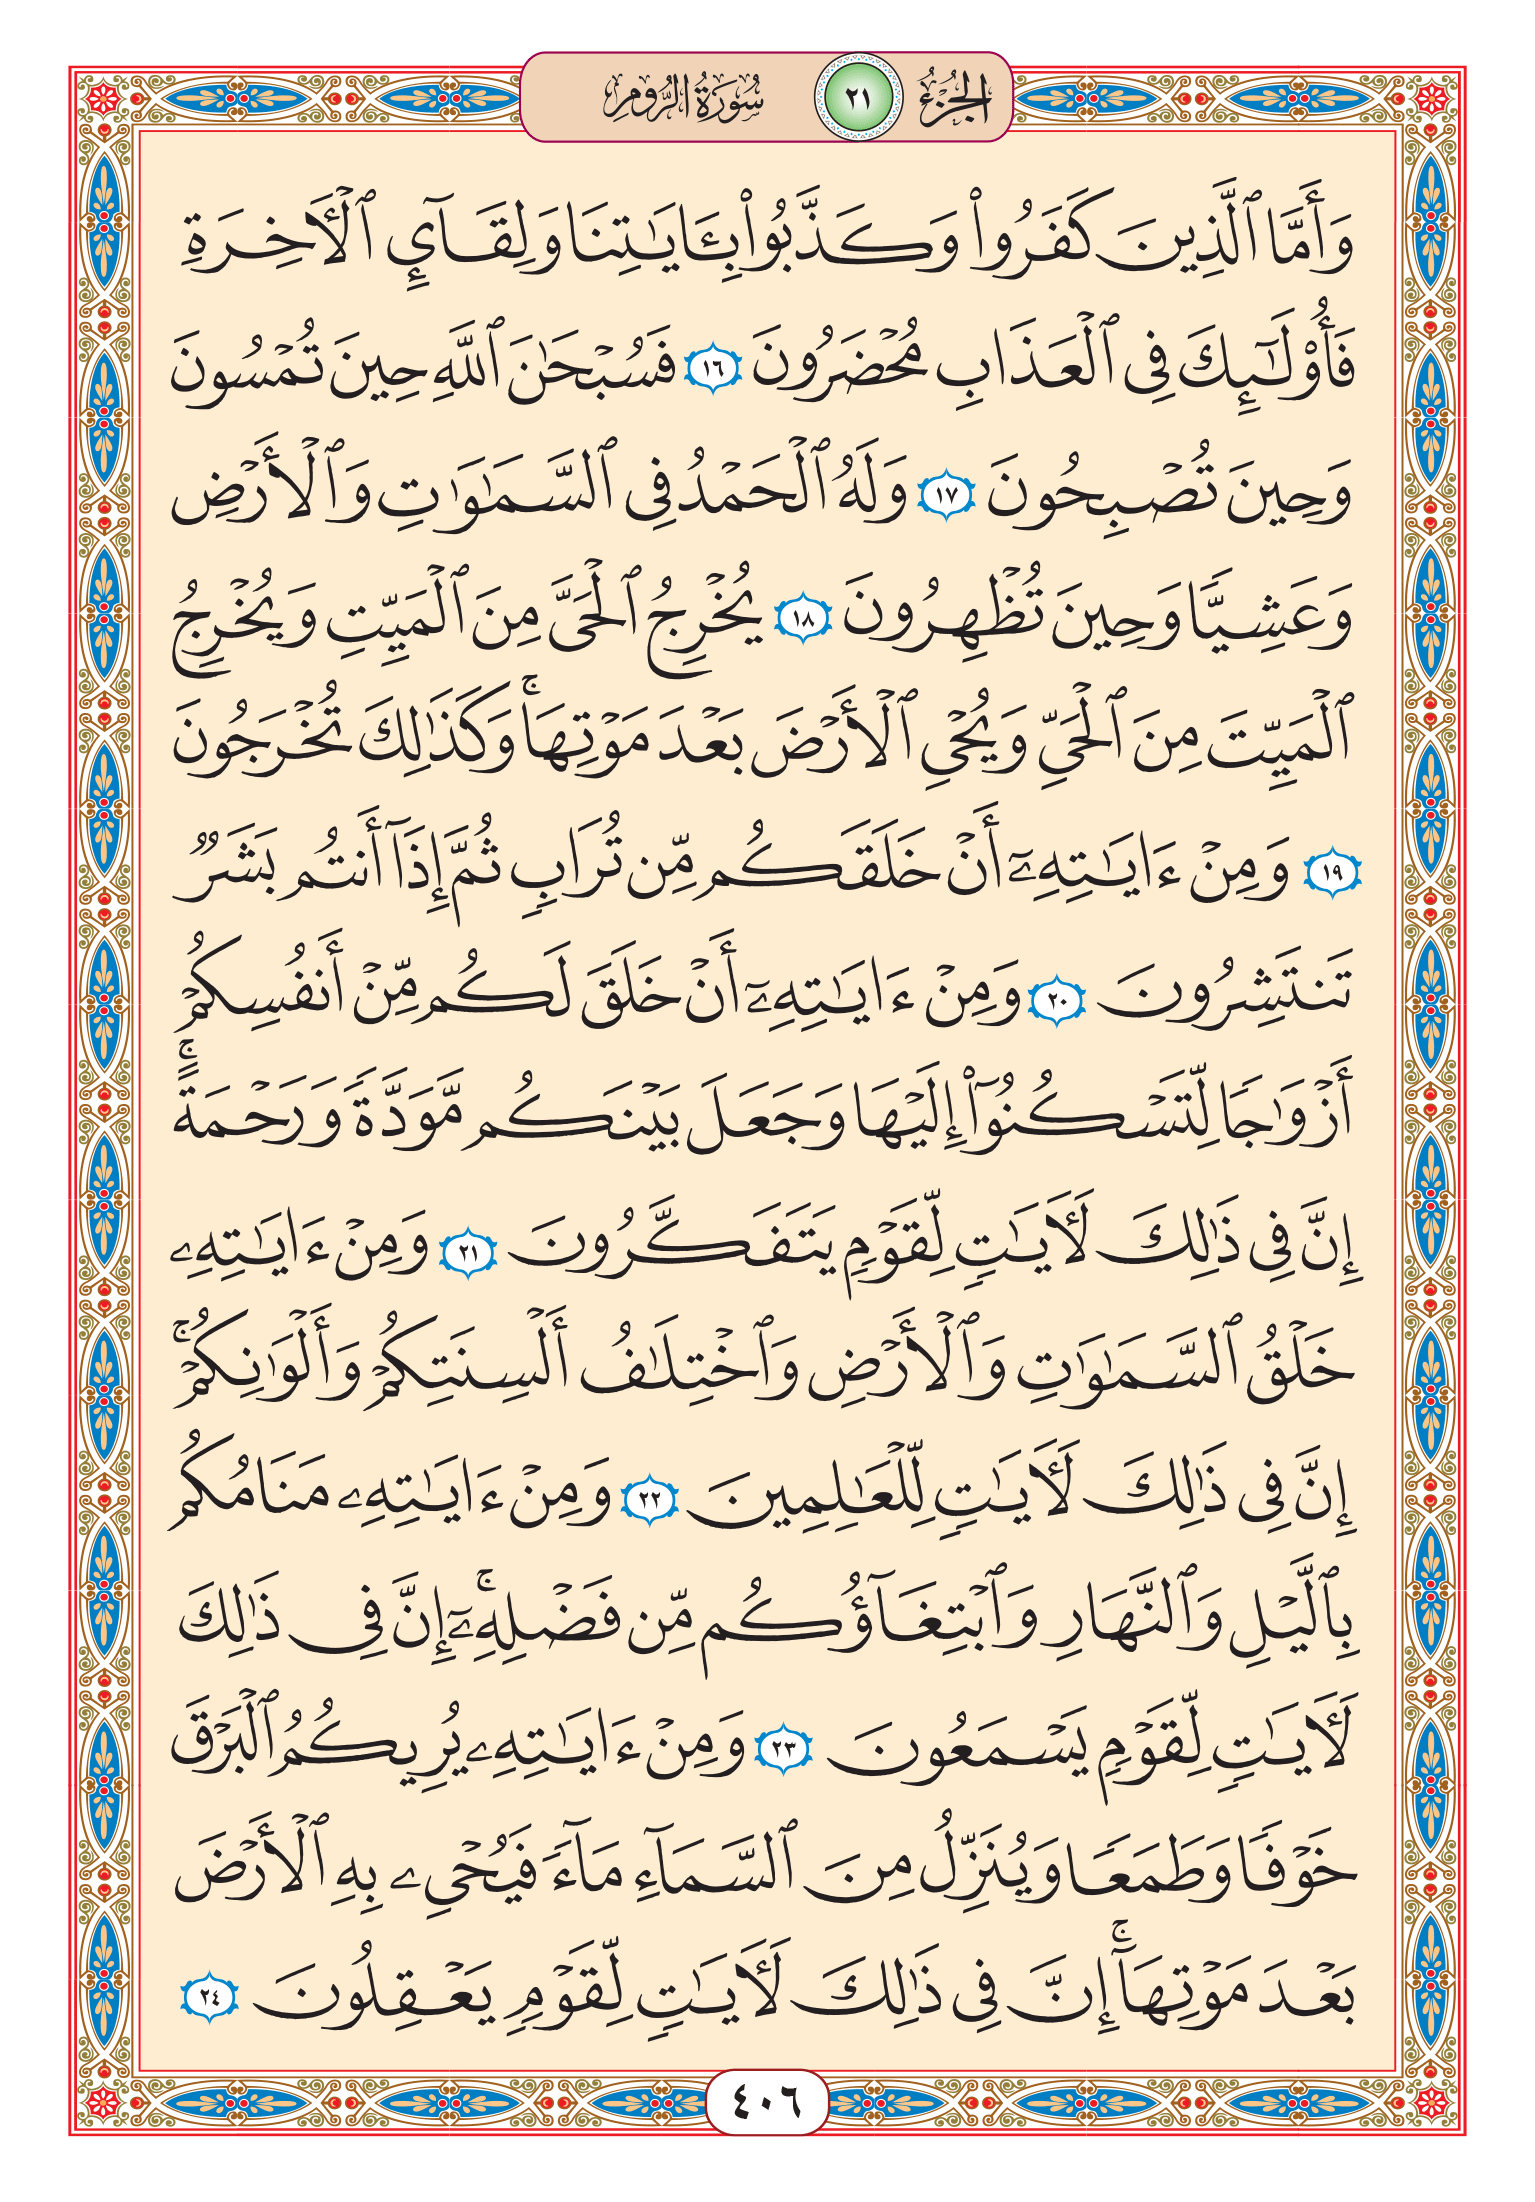 الجزء ٢١ سورة الروم
وَأَمَّا ٱلَّذِينَ كَفَرُوا۟ وَكَذَّبُوا۟ بِـَٔايَـٰتِنَا وَلِقَآئِ ٱلْأَخِرَةِ
فَأُو۟لَـٰٓئِكَ فِى ٱلْعَذَابِ مُحْضَرُونَ ١٦ فَسُبْحَـٰنَ ٱللَّهِ حِينَ تُمْسُونَ
وَحِينَ تُصْبِحُونَ ١٧ وَلَهُ ٱلْحَمْدُ فِى ٱلسَّمَـٰوَٰتِ وَٱلْأَرْضِ
وَعَشِيًّا وَحِينَ تُظْهِرُونَ ١٨ يُخْرِجُ ٱلْحَىَّ مِنَ ٱلْمَيِّتِ وَيُخْرِجُ
ٱلْمَيِّتَ مِنَ ٱلْحَىِّ وَيُحْىِ ٱلْأَرْضَ بَعْدَ مَوْتِهَا ۚ وَكَذَٰلِكَ تُخْرَجُونَ
١٩ وَمِنْ ءَايَـٰتِهِۦٓ أَنْ خَلَقَكُم مِّن تُرَابٍ ثُمَّ إِذَآ أَنتُم بَشَرٌ
تَنتَشِرُونَ ٢٠ وَمِنْ ءَايَـٰتِهِۦٓ أَنْ خَلَقَ لَكُم مِّنْ أَنفُسِكُمْ
أَزْوَٰجًا لِّتَسْكُنُوٓا۟ إِلَيْهَا وَجَعَلَ بَيْنَكُم مَّوَدَّةً وَرَحْمَةً ۚ
إِنَّ فِى ذَٰلِكَ لَـَٔايَـٰتٍ لِّقَوْمٍ يَتَفَكَّرُونَ ٢١ وَمِنْ ءَايَـٰتِهِۦ
خَلْقُ ٱلسَّمَـٰوَٰتِ وَٱلْأَرْضِ وَٱخْتِلَـٰفُ أَلْسِنَتِكُمْ وَأَلْوَٰنِكُمْ ۚ
إِنَّ فِى ذَٰلِكَ لَـَٔايَـٰتٍ لِّلْعَـٰلِمِينَ ٢٢ وَمِنْ ءَايَـٰتِهِۦ مَنَامُكُم
بِٱلَّيْلِ وَٱلنَّهَارِ وَٱبْتِغَآؤُكُم مِّن فَضْلِهِۦٓ ۚ إِنَّ فِى ذَٰلِكَ
لَـَٔايَـٰتٍ لِّقَوْمٍ يَسْمَعُونَ ٢٣ وَمِنْ ءَايَـٰتِهِۦ يُرِيكُمُ ٱلْبَرْقَ
خَوْفًا وَطَمَعًا وَيُنَزِّلُ مِنَ ٱلسَّمَآءِ مَآءً فَيُحْىِۦ بِهِ ٱلْأَرْضَ
بَعْدَ مَوْتِهَآ ۚ إِنَّ فِى ذَٰلِكَ لَـَٔايَـٰتٍ لِّقَوْمٍ يَعْقِلُونَ ٢٤
٤٠٦